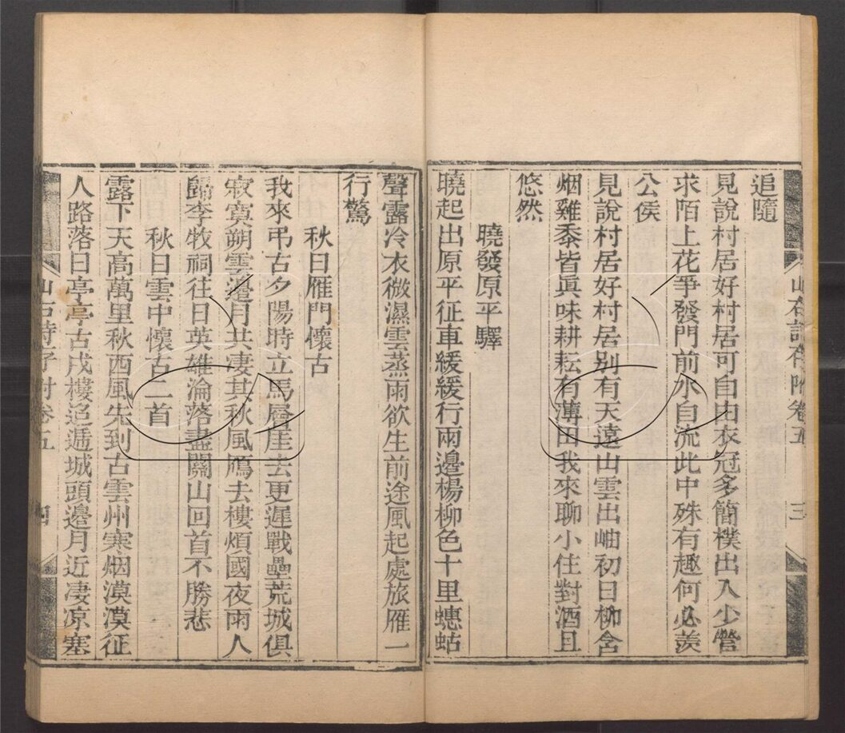 追隨
見說村居好村居可自由衣冠多簡樸出入少營
求陌上花爭發門前水自流此中殊有趣何必羨
公侯
見說村居好村居別有天遠山雲出岫初日柳含
烟雞黍皆眞味耕耘有薄田我來聊小住對酒且
悠然
曉發原平驛
曉起出原平征車緩緩行兩邊楊柳色十里蟪蛄
山右詩存附卷五
三
聲露冷衣微濕雲蒸雨欲生前途風起處旅雁一
行驚
秋日雁門懷古
我來弔古夕陽時立馬層崖去更遲戰壘荒城俱
寂寞朔雲邊月共凄其秋風鴈去樓煩國夜雨人
歸李牧祠往日英雄淪落盡關山回首不勝悲
秋日雲中懷古二首
露下天高萬里秋西風先到古雲州寒烟漠漠征
人路落日亭亭古戍樓迢遞城頭邊月近凄凉塞
山右詩存附卷五
四